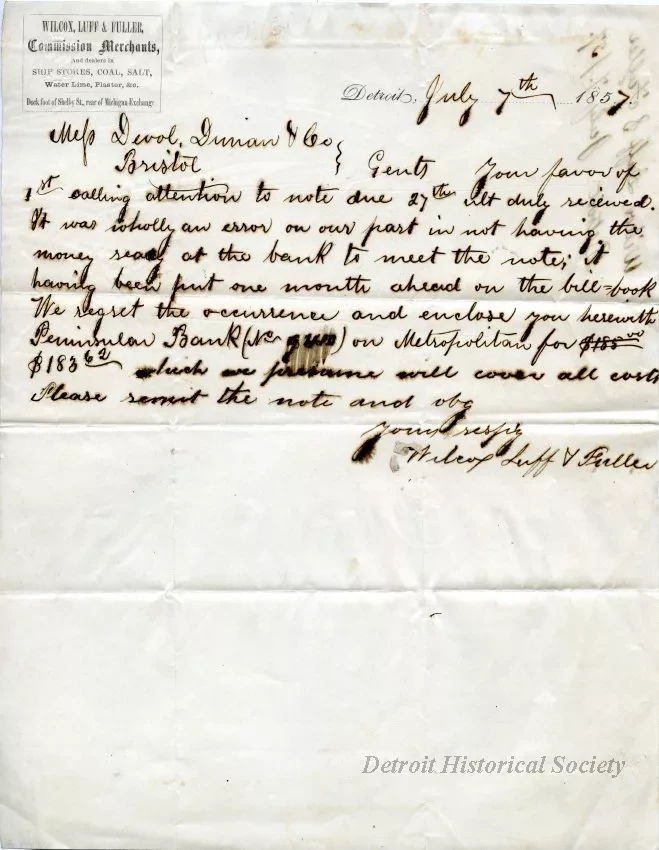 WILCOX, LUFF & FULLER,
Commission Merchants,
And dealers in
SHIP STORES, COAL, SALT,
Water Lime, Plaster, &c.
Dock foot of Shelby St., rear of Michigan Exchange.
Detroit, July 7th 1857.
Mess Devol, Dunan & Co
Bristol } Gents Your favor of
1st calling attention to note due 27th ult duly received.
It was wholly an error on our part in not having the
money ready at the bank to meet the note; it
having been put one month ahead on the bill=book
We regret the occurrence and enclose you herewith
Peninsular Bank (No ) on Metropolitan for $185 00
$183 62 which we presume will cover all costs
Please remit the note and obg
Yours respy
Wilcox Luff & Fuller
Detroit Historical Society